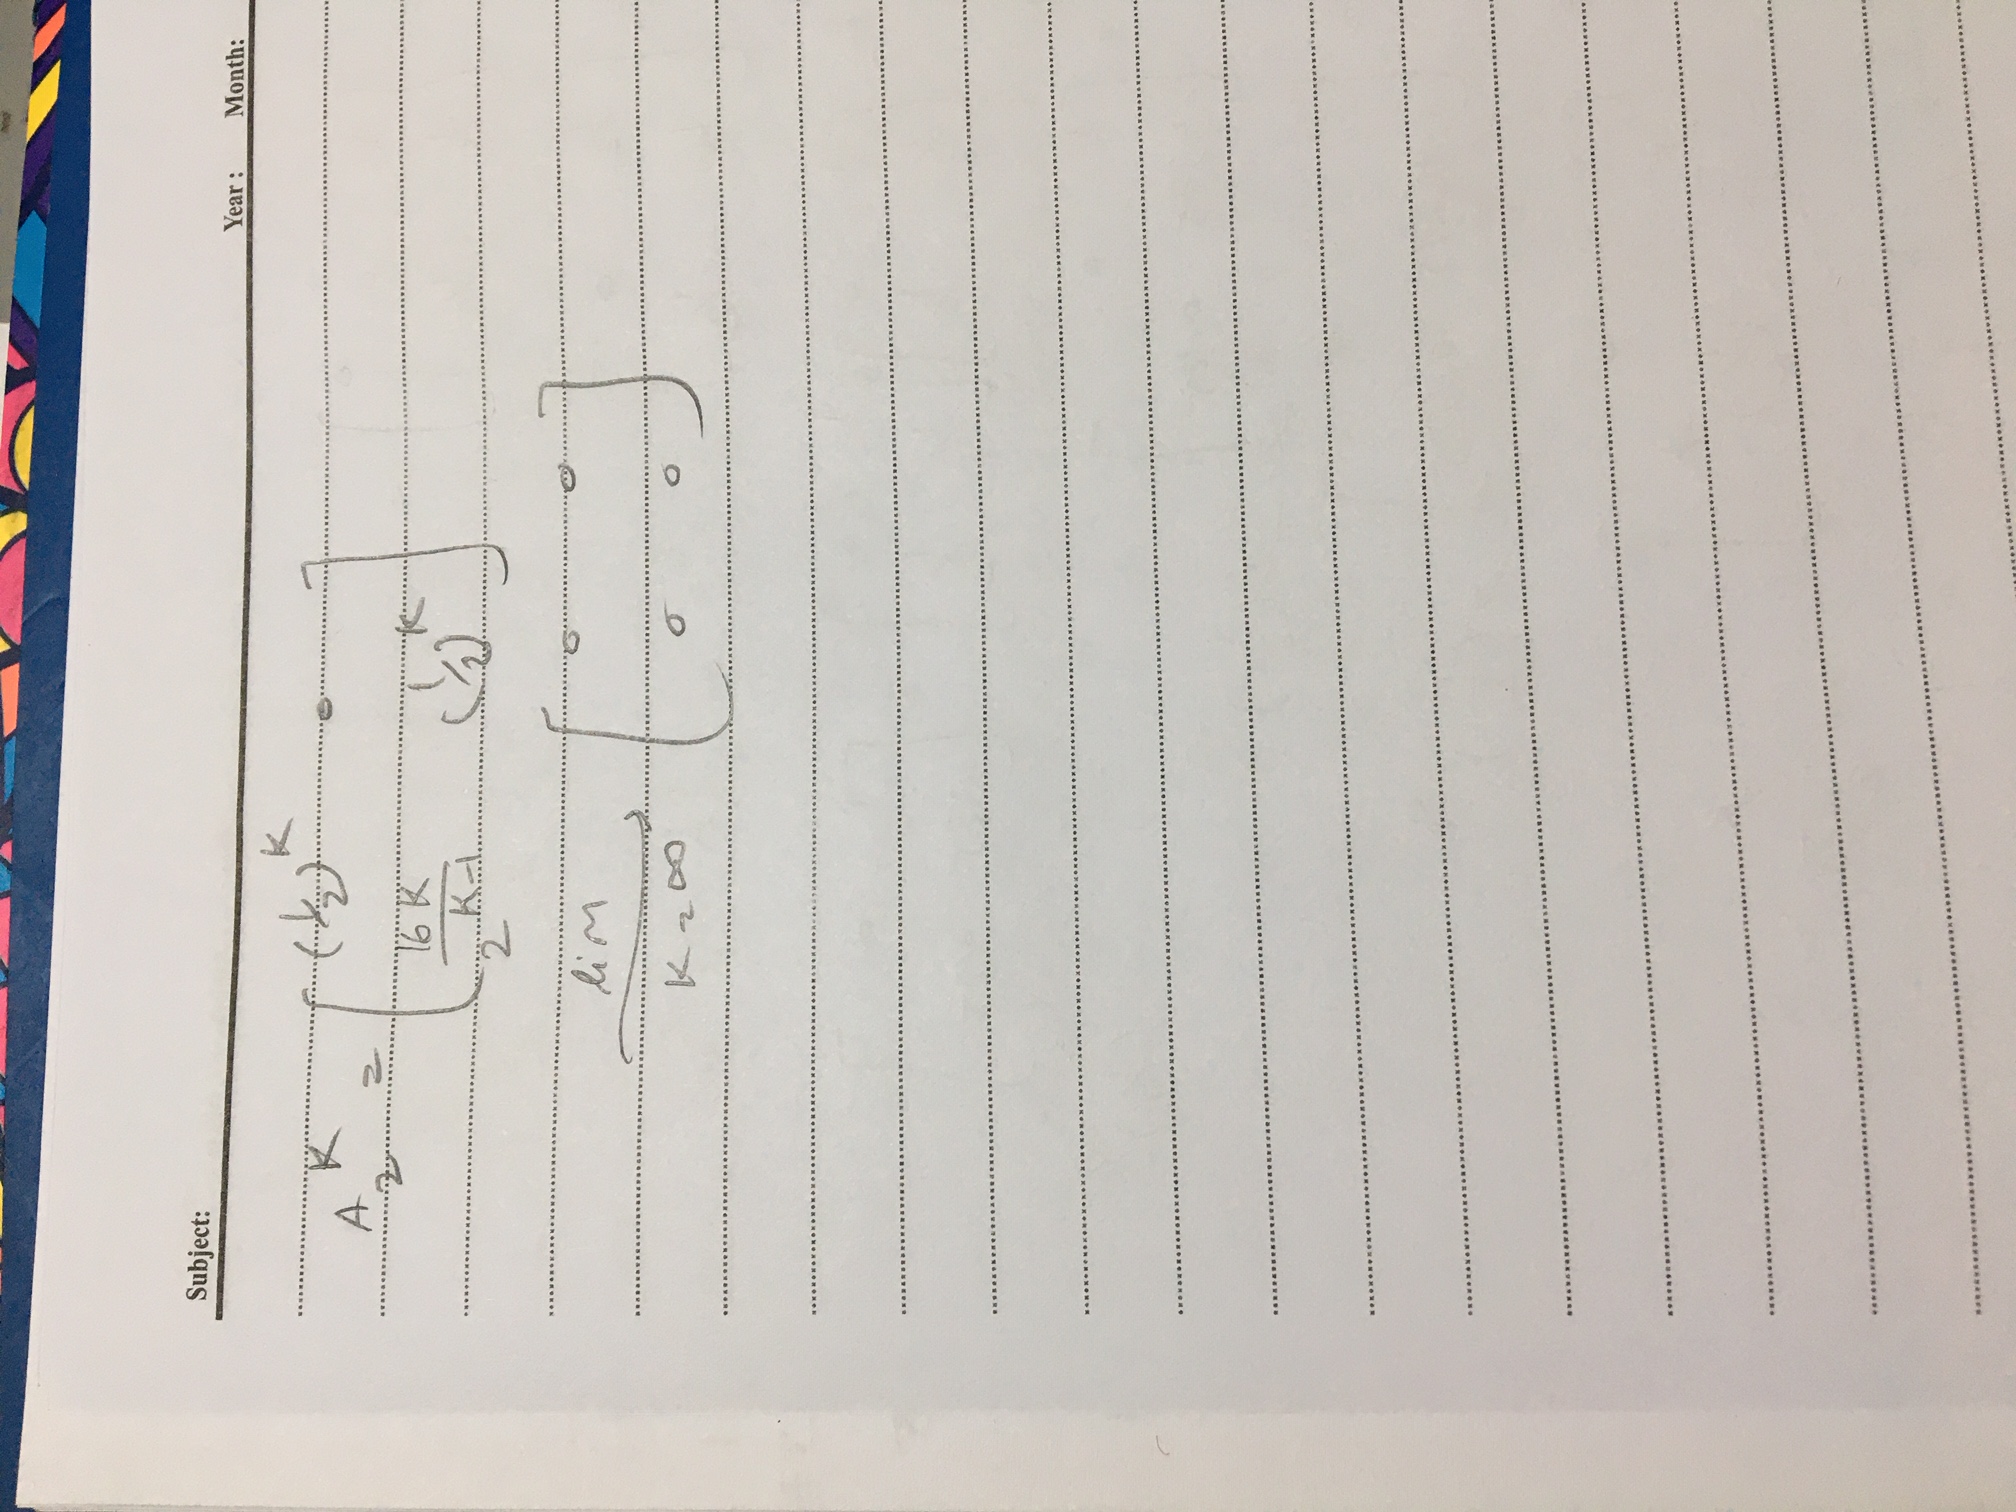 Subject:
Year : Month:
A₂ᴷ = [ (1/2)ᴷ 0
16K/2ᴷ⁻¹ (1/2)ᴷ ]
lim [ 0 0
K = ∞ 0 0 ]